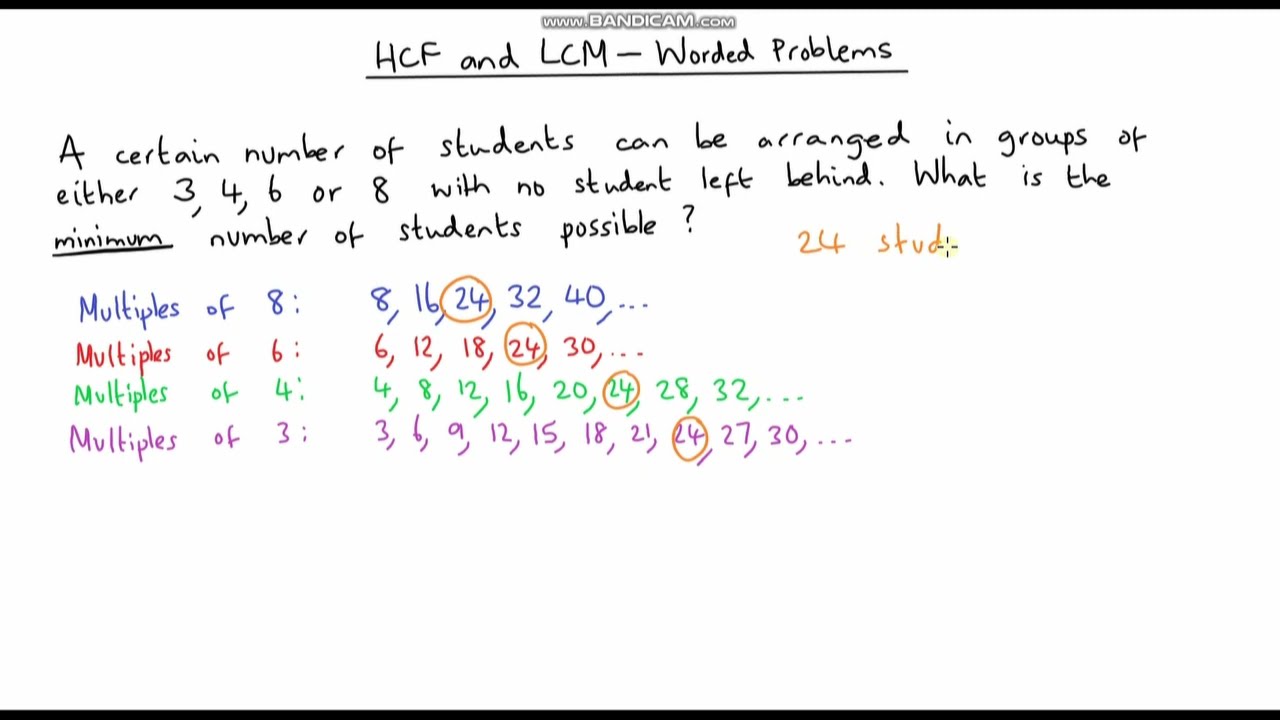 www.BANDICAM.com
HCF and LCM – Worded Problems
A certain number of students can be arranged in groups of
either 3, 4, 6 or 8 with no student left behind. What is the
minimum number of students possible ?
24 stud
Multiples of 8: 8, 16, 24, 32, 40, ...
Multiples of 6: 6, 12, 18, 24, 30, ...
Multiples of 4: 4, 8, 12, 16, 20, 24, 28, 32, ...
Multiples of 3: 3, 6, 9, 12, 15, 18, 21, 24, 27, 30, ...